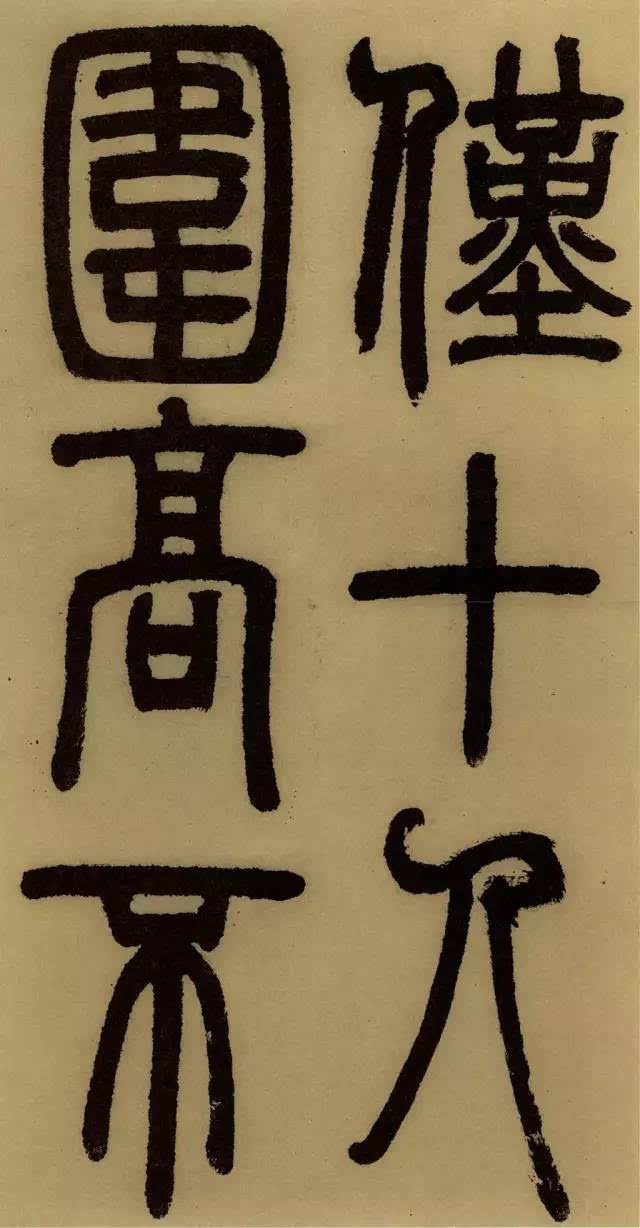 僅十人
圍高不